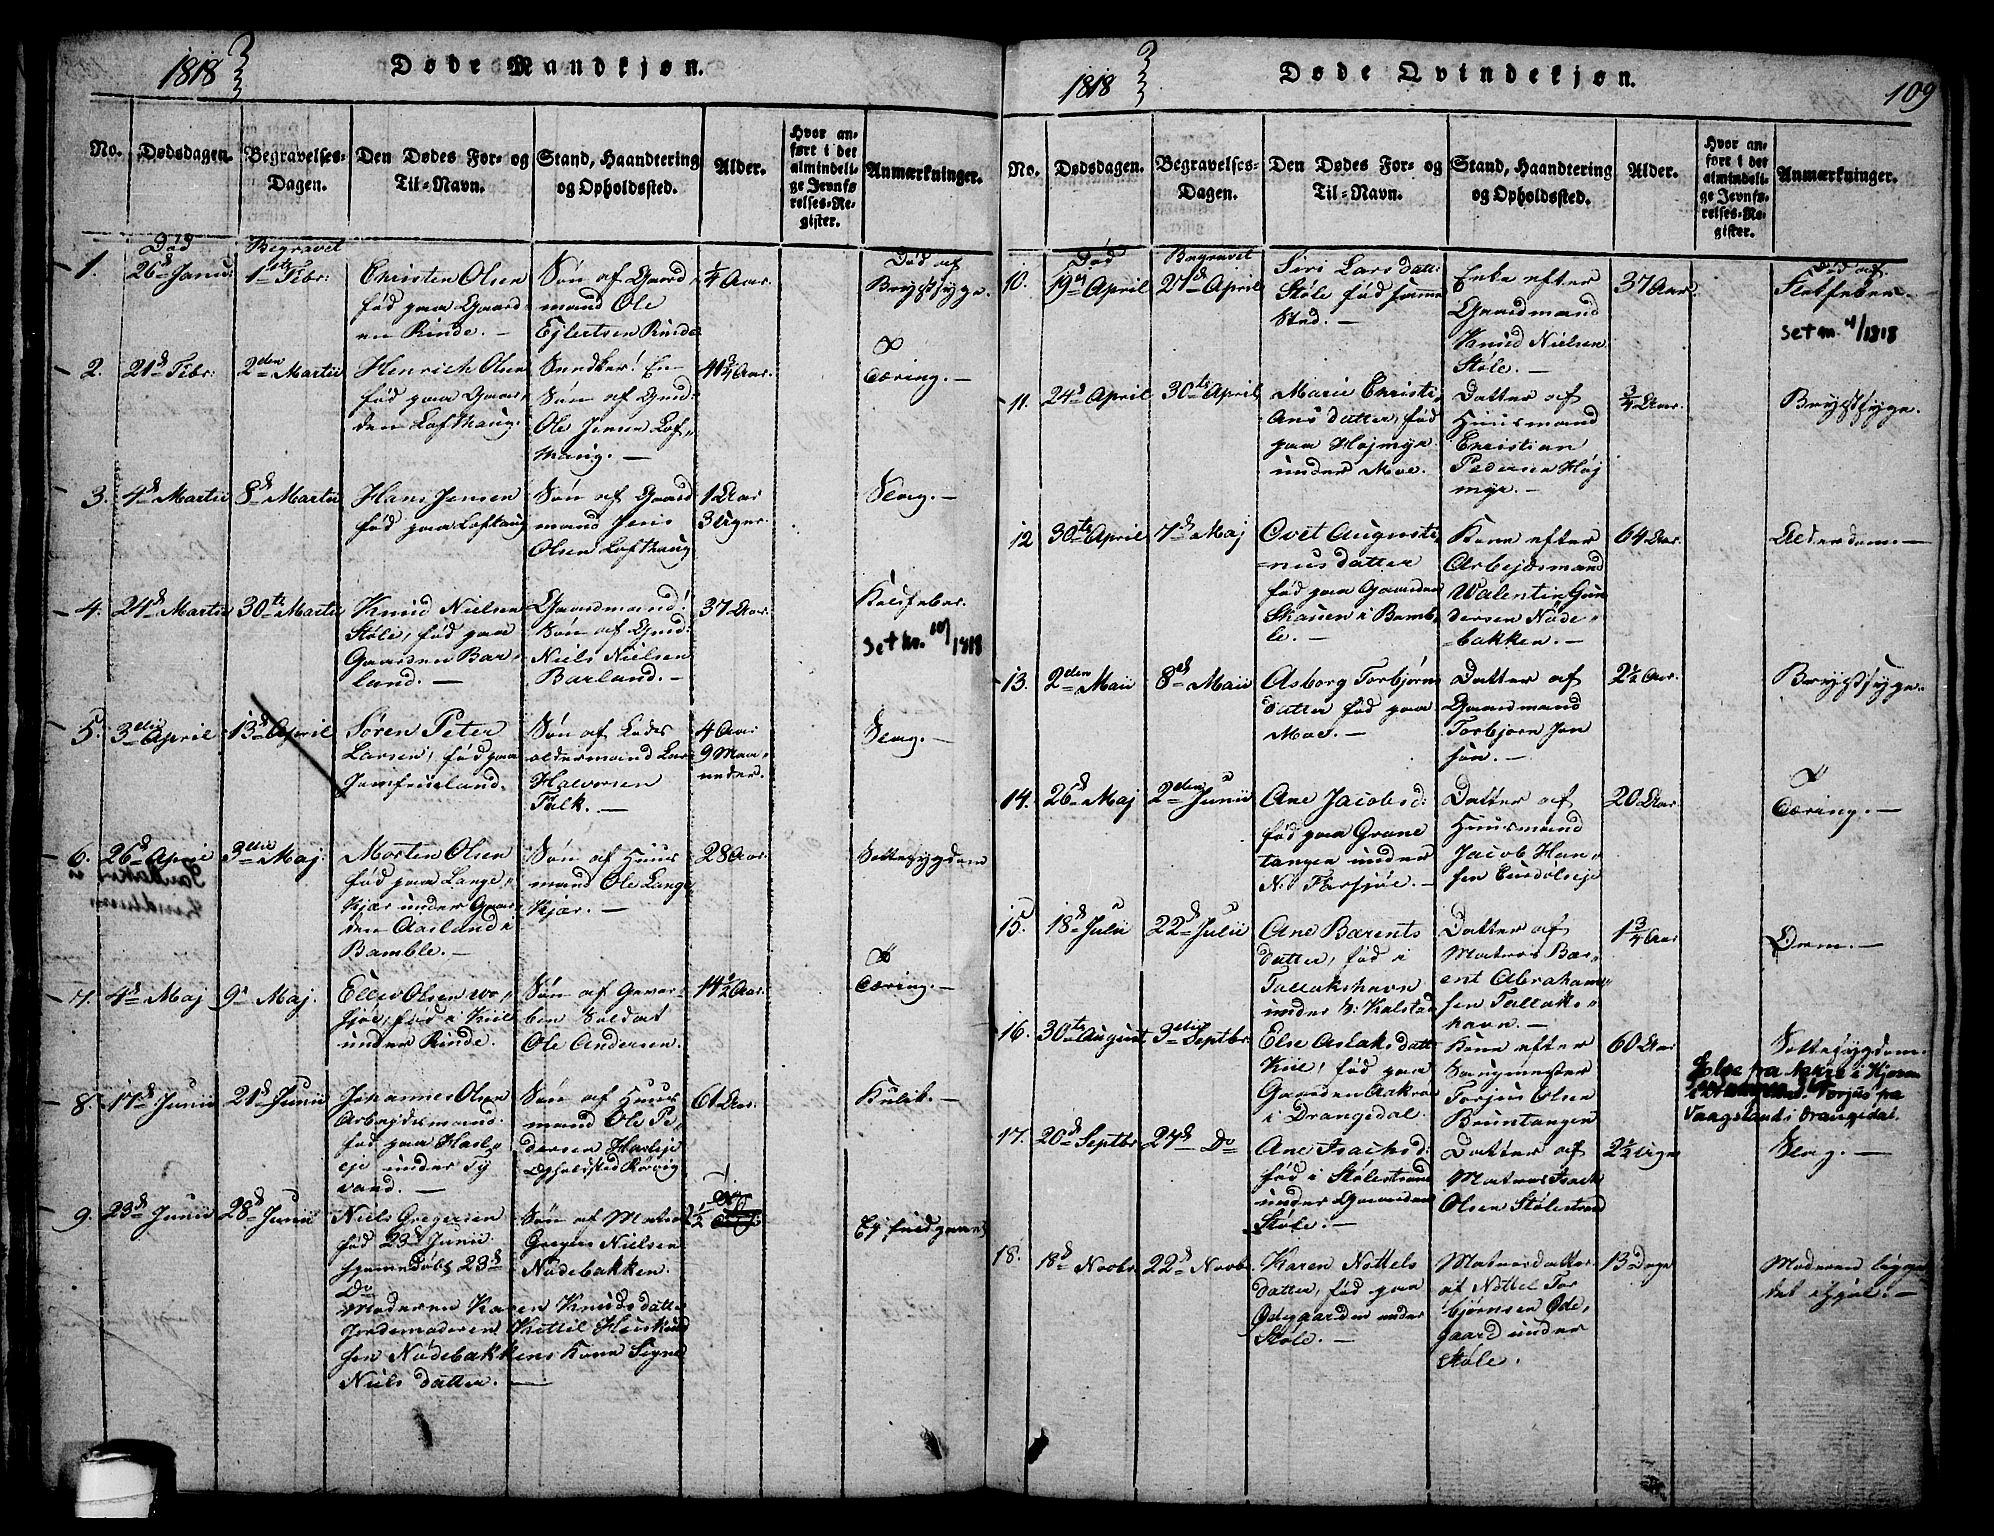 1818
Døde Mandkjøn.
No.
Dødsdagen.
Begravelses-
Dagen.
Den Dødes For- og
Til-Navn.
Stand, Haandtering
og Opholdssted.
Alder.
Hvor an-
ført i det
almindeli-
ge Jevnfø
relses-Re-
gister.
Anmærkninger.
1.
Død
26d Janu:
Begravet
1ste Febr:
Christen Olsen
fød paa Gaard-
en Rinde. —
Søn af Gaard-
mand Ole
Ejlertsen Rinde
1/4 Aar.
Død af
Brystsyge.
2.
21d Febr:
2den Martii
Henrich Olsen
fød paa Gaar-
den Lofthaug.
Søn af Gmd:
Ole Jensen Lof-
thaug. —
41 3/4 Aar.
Tæring. —
3.
4d Martii
8d Martii
Hans Jensen
fød paa Lofthaug
Søn af Gaard
mand Jens
Olsen Lofthaug
1 Aar
3 Uger.
Slag. —
4.
24d Martii
30te Martii
Knud Nielsen
Støle, fød paa
Gaarden Bar-
land. —
Gaardmand!
Søn af Gmd:
Niels Nielsen
Barland. —
37 Aar.
Koldfeber.
Set nr. 10/1818
5.
3die April
13d April
Søren Peter
Larsen, fød paa
Jomfrueland.
Søn af Lods
oldermand Lars
Halvorsen
Falk. —
4 Aar
9 Maa-
neder.
Slag. —
6.
26d April
3die Maj.
Morten Olsen
fød paa Lange-
kjær under Gaar-
den Aasland i
Bamble. —
Søn af Huus
mand Ole Lange
kjær. —
28 Aar.
Sottesygdom
7.
4d Maj
9d Maj.
Ellev Olsen
fød i Kiil
under Rinde.
Søn af Gevor-
ben Soldat
Ole Andersen.
14 1/2 Aar.
Tæring. —
8.
17d Junii
21d Junii
Johannes Olsen
Arbejdsmand
fød paa Hasle-
eje under Sy
vand. —
Søn af Huus
mand Ole Pe-
dersen Hasleje
Opholdsted Rørvig
61 Aar.
Kulik. —
9.
23d Junii
28d Junii
Niels Gregersen
fød 23d Junii
hjemmedøbt 23d
Do
Moderen Karen Knudsdatter
Jordemoderen Kittil
sen Nødebakkens Kone Signe
Niels datter. —
Søn af Matros
Gregers Nielsen
Nødebakken.
1/2
1818
Døde Qvindekjøn.
109
No.
Dødsdagen.
Begravelses-
Dagen.
Den Dødes For- og
Til-Navn.
Stand, Haandtering
og Opholdssted.
Alder.
Hvor an-
ført i det
almindeli-
ge Jevnfø-
relses-Re-
gister.
Anmærkninger.
10.
Død
19d April
Begravet
27d April
Siri Lars datter
Støle fød samme
Sted. —
Enke efter
Gaardmand
Knud Nielsen
Støle. —
37 Aar.
Død af
Set nr. 4/1818
11.
24d April
30te April
Marie Christi-
ans datter, fød
paa Højmyr
under Moe. —
Datter af
Huusmand
Christian
Pedersen Høj
myr. —
3/4 Aar.
Brystsyge.
12
30te April
7d Maj
Ovet Augusti-
nusdatter
fød paa Gaarden
Skauen i Bamb-
le. —
Kone efter
Arbejdsmand
Walentin Gun
dersen Nøde-
bakken. —
64 Aar.
Alderdom. —
13.
2den Maii
8de Maii
Asborg Torbjørns
datter fød paa
Moe. —
Datter af
Gaardmand
Torbjørn Jon
søn. —
2 1/2 Aar.
Brystsyge.
14.
26d Maj
2den Junii
Ane Jacobsd:
fød paa Grane
tangen under
N: Farsjøe. —
Datter af
Huusmand
Jacob Han-
sen Eurdølseje
20 Aar
Tæring. —
15.
18d Julii
22d Julii
Ane Barents
datter, fød i
Tallakshavn
under Kalstad
Datter af
Matros Bar-
ent Abraham-
sen Tallaks-
havn. —
1 3/4 Aar
Orm. —
16.
30te August
3die Septbr.
Else Aslaksdatt:
Kiil, fød paa
Gaarden Aakre
i Drangedal.
Kone efter
Torjus Olsen
Bruntangen
60 Aar
Sottesygdom.
Else fra
Torjus fra
Vaagsland i Drangedal.
17.
20d Septbr.
27d Do
Ane Isachsd:
fød i Stølestrand
under Gaarden
Støle. —
Datter af
Matros Isack
Olsen Stølestrand
2 1/2 Uger
Slag. —
18.
18d Novbr.
22d Novbr.
Karen Nottels
datter, fød paa
Ødegaarden under
Støle. —
Matrosdatter
af Nottel Tor
bjørnsen Øde-
gaard under
Støle.
13 Dage
Moderen ligge-
det ihjel. —